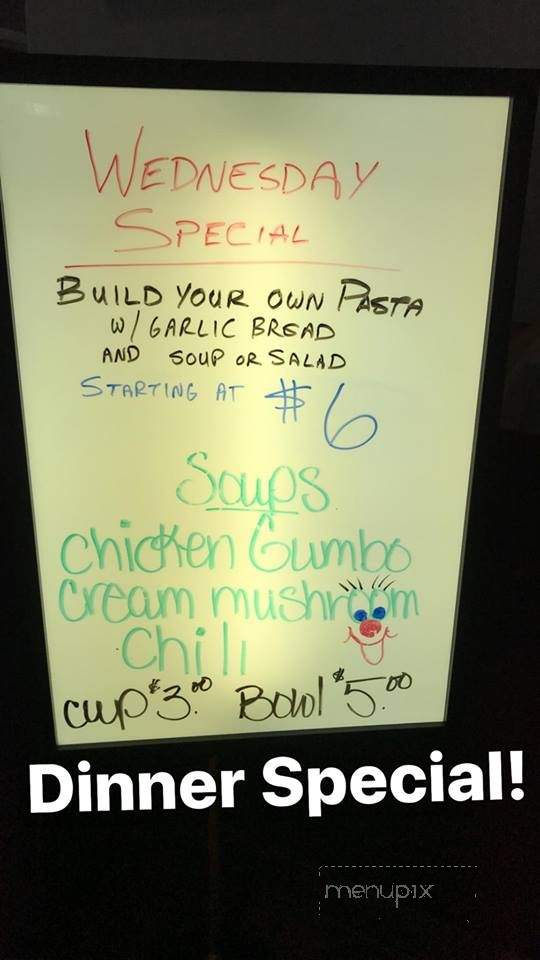 WEDNESDAY
SPECIAL
BUILD YOUR OWN PASTA
W/ GARLIC BREAD
AND SOUP OR SALAD
STARTING AT $6
Soups
chicken Gumbo
cream mushroom
chili
cup $3.00 Bowl $5.00
Dinner Special!
menupix